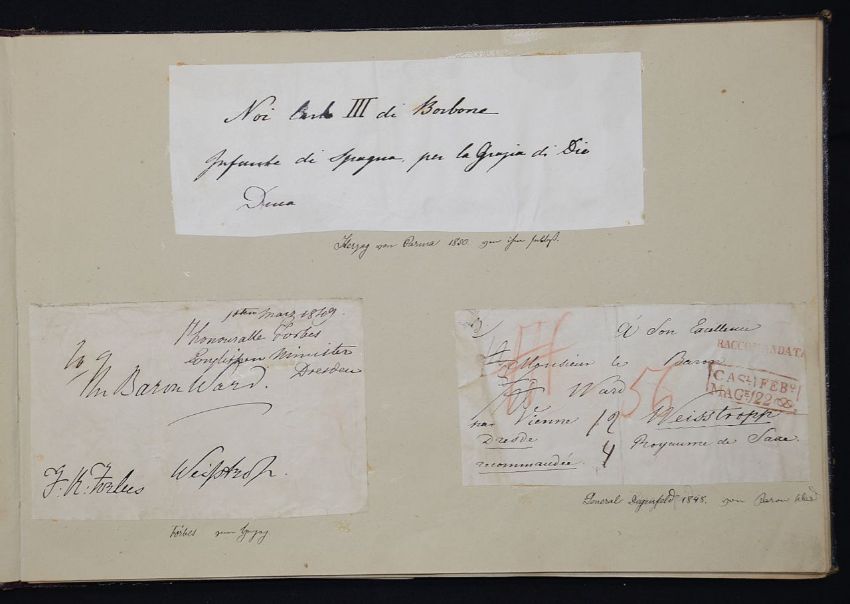 Noi Carlo III di Borbone
Infante di Spagna per la Grazia di Dio
Duca
Herzog von Parma 1850. von ihm selbst.
1ten März 1849.
honouralle Forbes
Englischen Minister
Dresden
To
Baron Ward.
F. R. Forbes
Forbes
À Son Excellence
RACCOMANDATA
Monsieur le Baron
CAS. FEB.
MAG. 22
Ward
56
par Vienne 12 Weisstropp
Dresde
4
Royaume de Saxe.
recommandée.
General Degenfeld 1848. von Baron